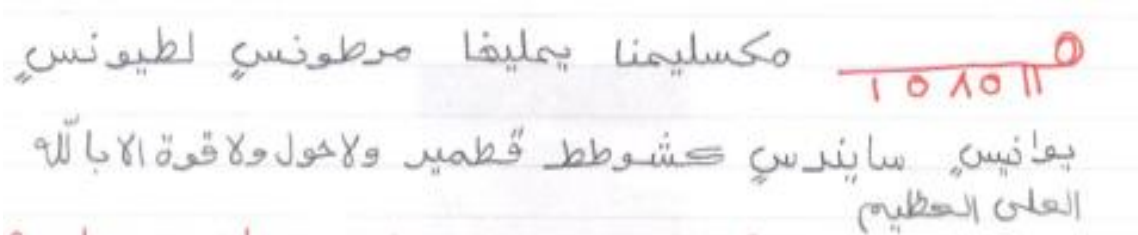 مكسليمنا يمليفا مرطونس لطيونس
يوانيس سايندس كشوطط قطمير ولاحول ولا قوة الا بالله
العلى العظيم